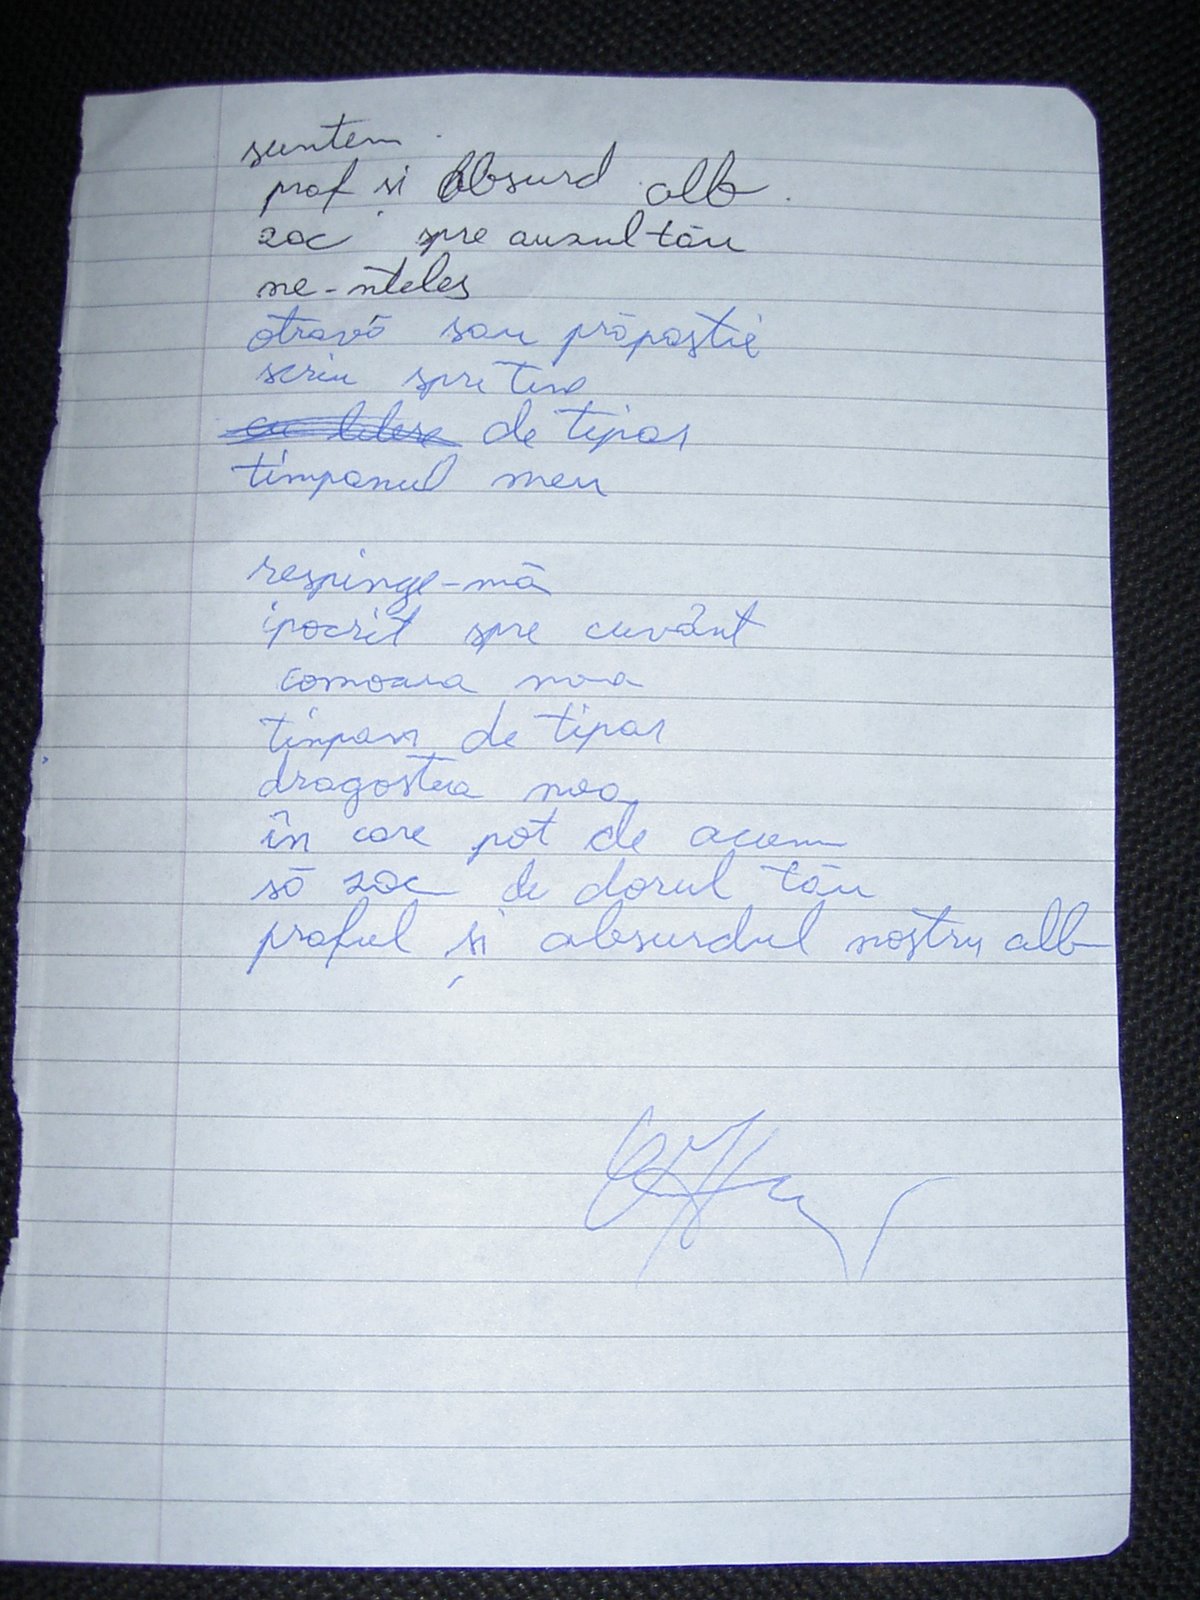 suntem
praf si absurd alb
zac spre auzul tău
ne-nteles
otravă sau prăpastie
scriu spre tine
cu litere de tipar
timpanul meu
respinge-mă
ipocrit spre cuvânt
comoara mea
timpan de tipar
dragostea mea
în care pot de acum
să zac de dorul tău
praful și absurdul nostru alb